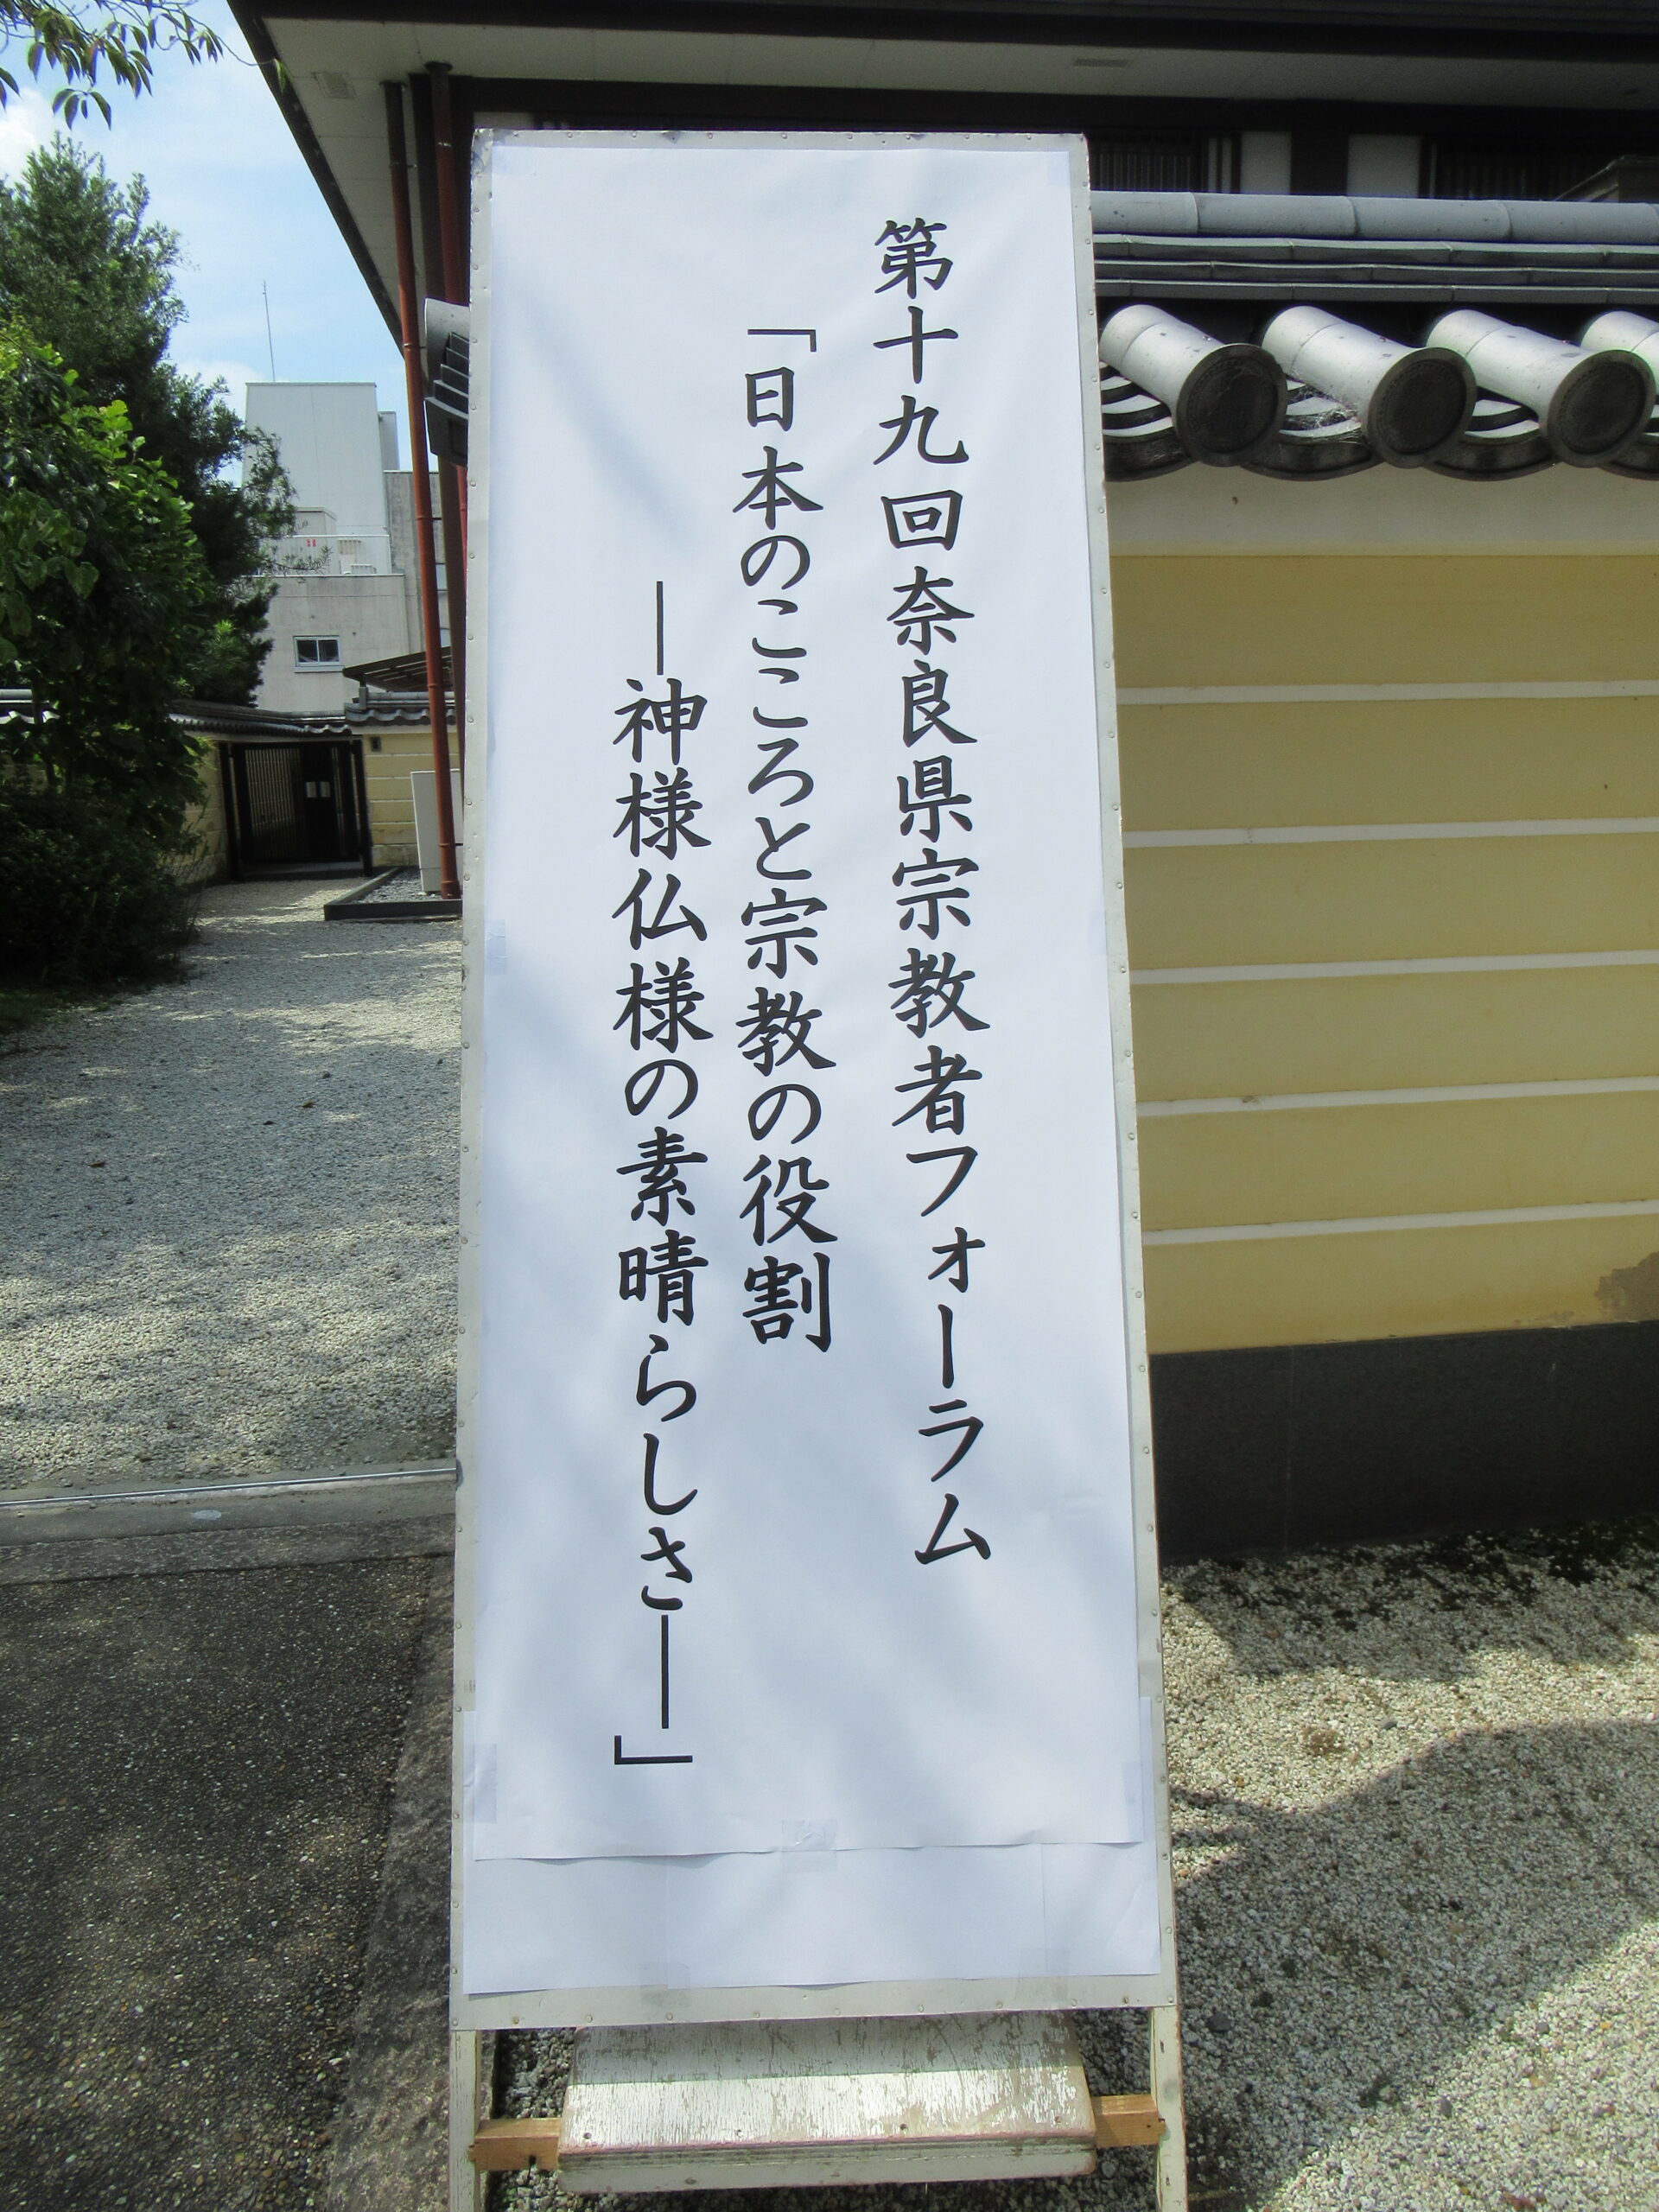 第十九回奈良県宗教者フォーラム
「日本のこころと宗教の役割
―神様仏様の素晴らしさ―」